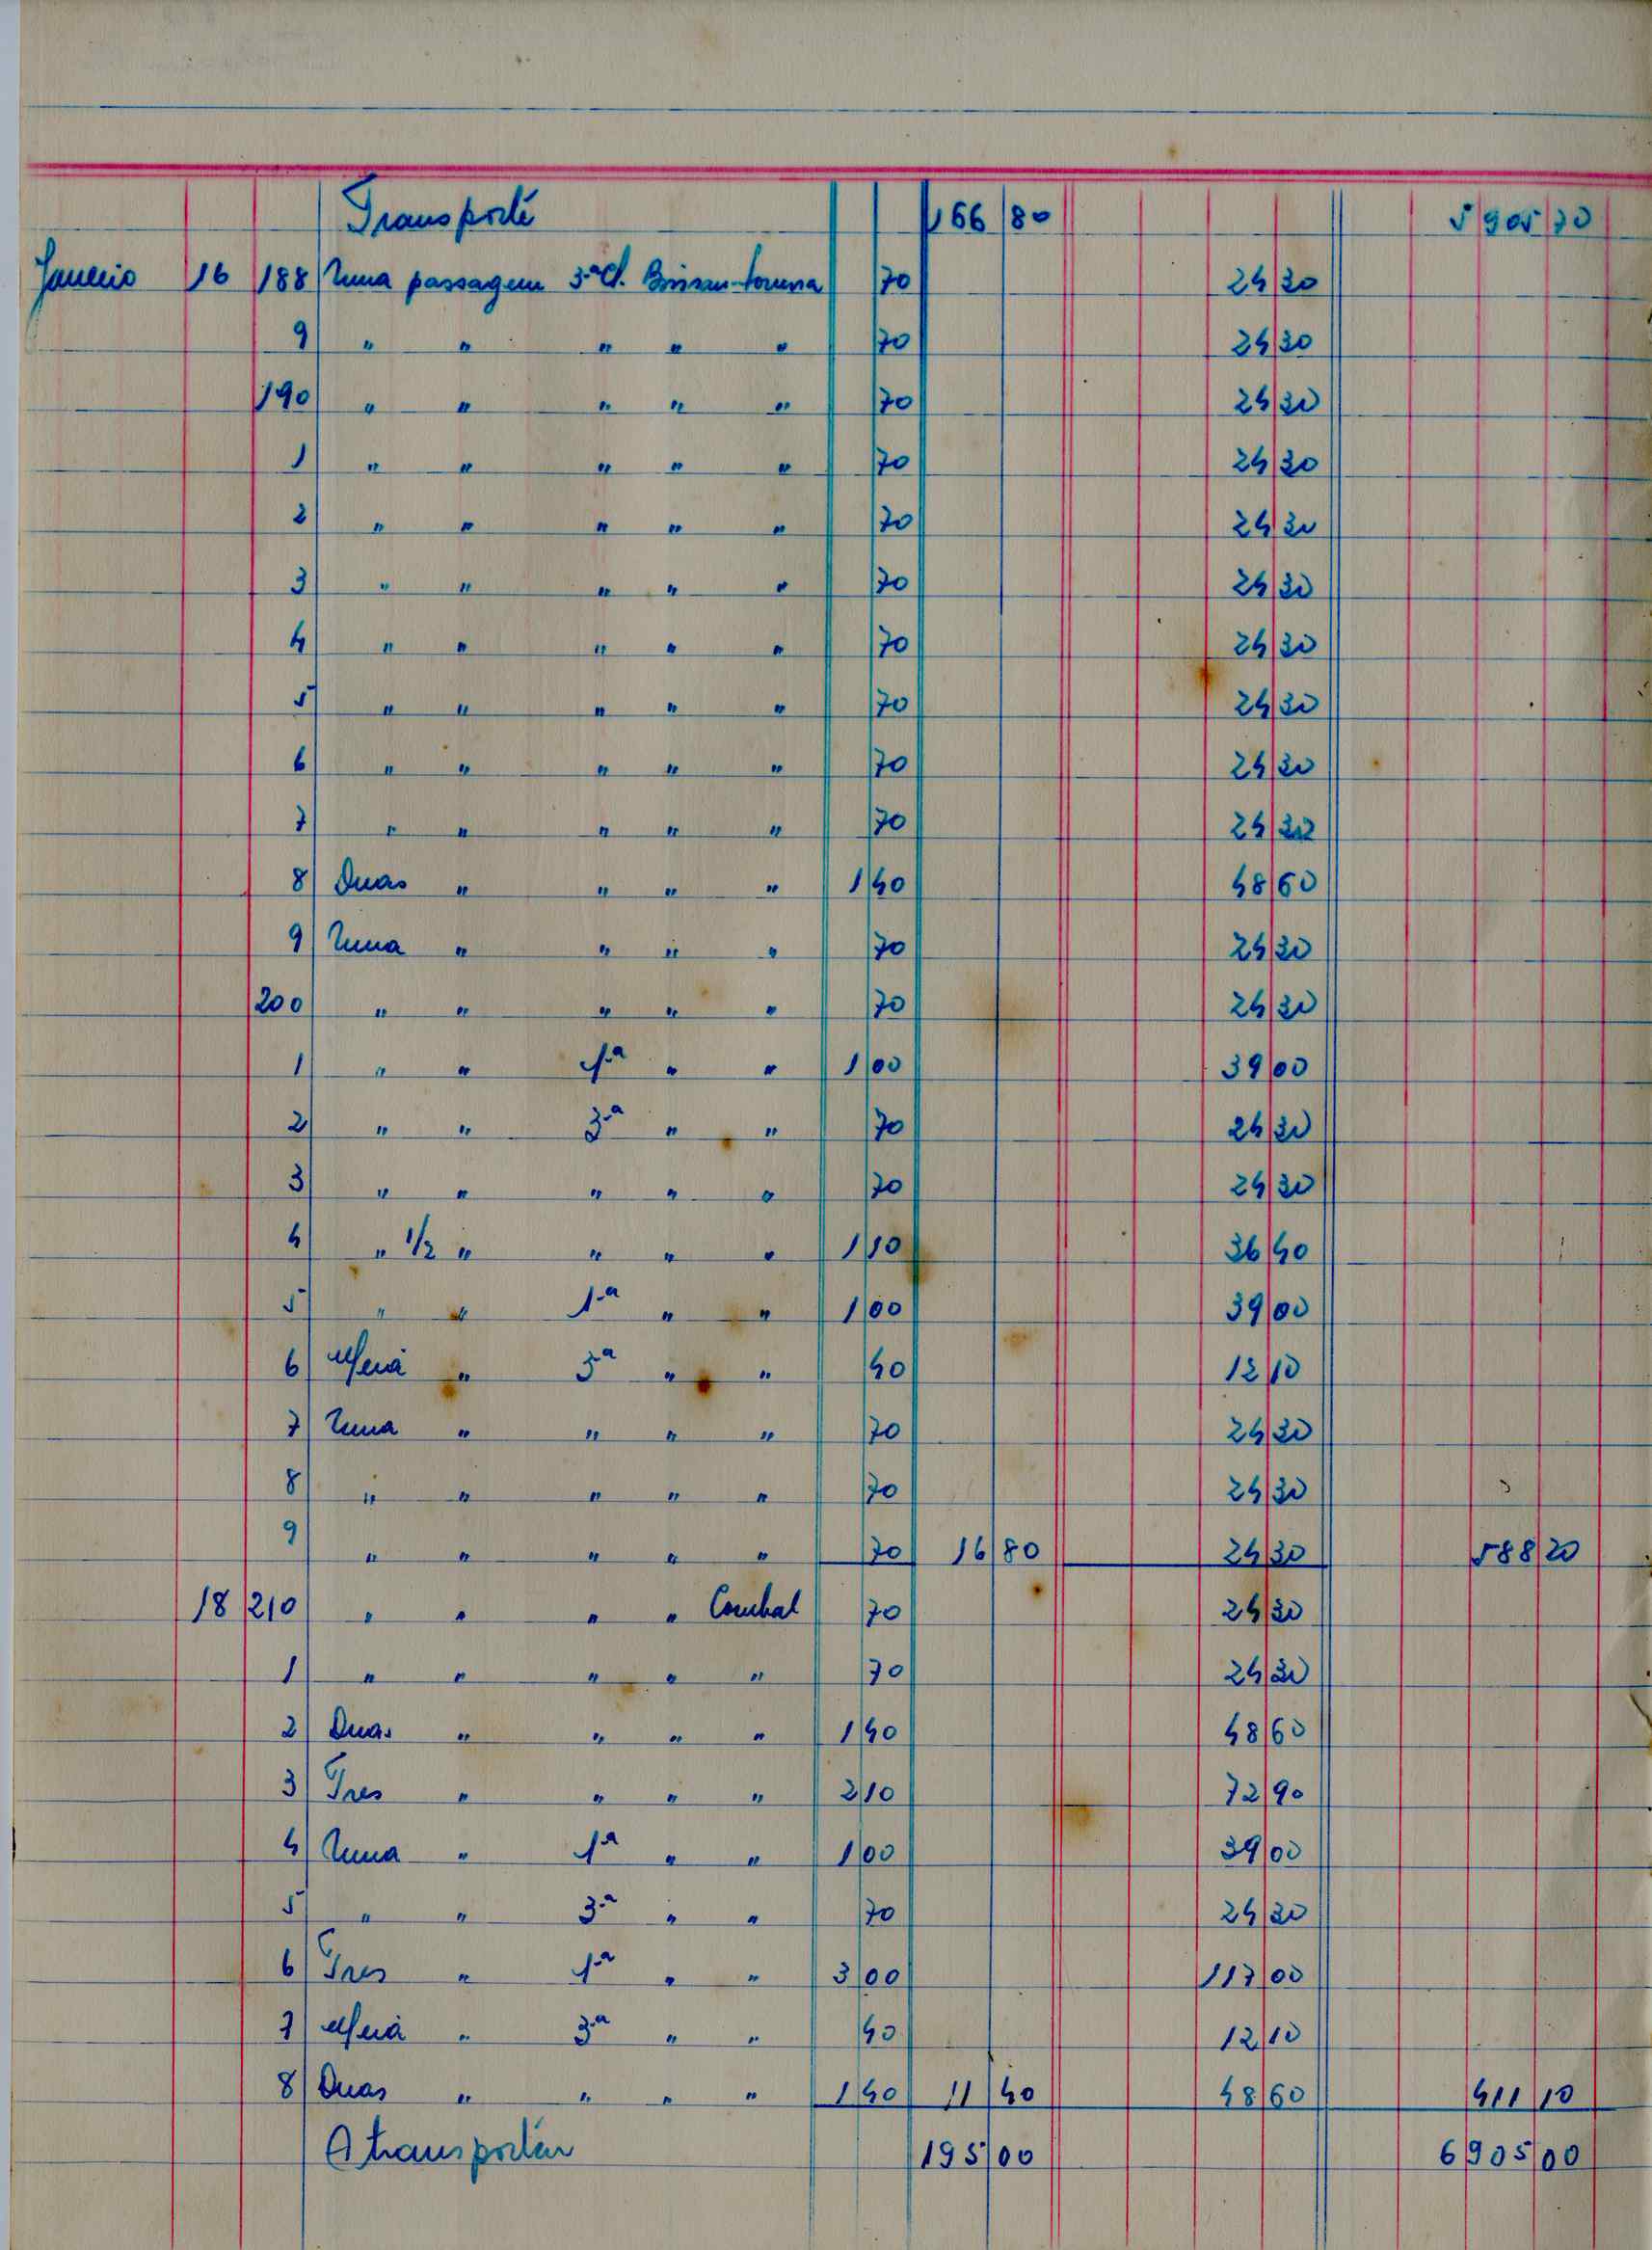 Transporte 166 80 5 905 70
Janeiro 16 188 Uma passagem 3.ª Cl. 70 24 30
9 " " " " " 70 24 30
190 " " " " " 70 24 30
1 " " " " " 70 24 30
2 " " " " " 70 24 30
3 " " " " " 70 24 30
4 " " " " " 70 24 30
5 " " " " " 70 24 30
6 " " " " " 70 24 30
7 " " " " " 70 24 30
8 Duas " " " " 1 40 48 60
9 Uma " " " " 70 24 30
200 " " " " " 70 24 30
1 " " 1.ª " " 1 00 39 00
2 " " 3.ª " " 70 24 30
3 " " " " " 70 24 30
4 " 1/2 " " " " 1 10 36 40
5 " " 1.ª " " 1 00 39 00
6 Meia " 3.ª " " 40 12 10
7 Uma " " " " 70 24 30
8 " " " " " 70 24 30
9 " " " " " 70 16 80 24 30 588 20
18 210 " " " " 70 24 30
1 " " " " " 70 24 30
2 Duas " " " " 1 40 48 60
3 Tres " " " " 2 10 72 90
4 Uma " 1.ª " " 1 00 39 00
5 " " 3.ª " " 70 24 30
6 Tres " 1.ª " " 3 00 117 00
7 Meia " 3.ª " " 40 12 10
8 Duas " " " " 1 40 11 40 48 60 411 10
A transportar 195 00 6 905 00